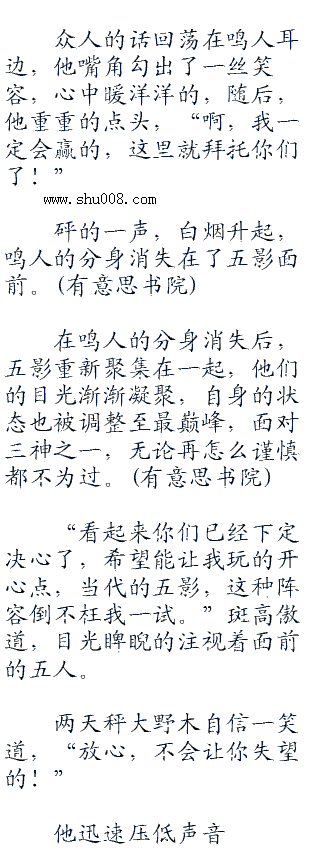 众人的话回荡在鸣人耳
边，他嘴角勾出了一丝笑
容，心中暖洋洋的，随后，
他重重的点头，“啊，我一
定会赢的，这里就拜托你们
了！”
www.shu008.com
砰的一声，白烟升起，
鸣人的分身消失在了五影面
前。(有意思书院)
在鸣人的分身消失后，
五影重新聚集在一起，他们
的目光渐渐凝聚，自身的状
态也被调整至最巅峰，面对
三神之一，无论再怎么谨慎
都不为过。(有意思书院)
“看起来你们已经下定
决心了，希望能让我玩的开
心点，当代的五影，这种阵
容倒不枉我一试。”斑高傲
道，目光睥睨的注视着面前
的五人。
两天秤大野木自信一笑
道，“放心，不会让你失望
的！”
他迅速压低声音